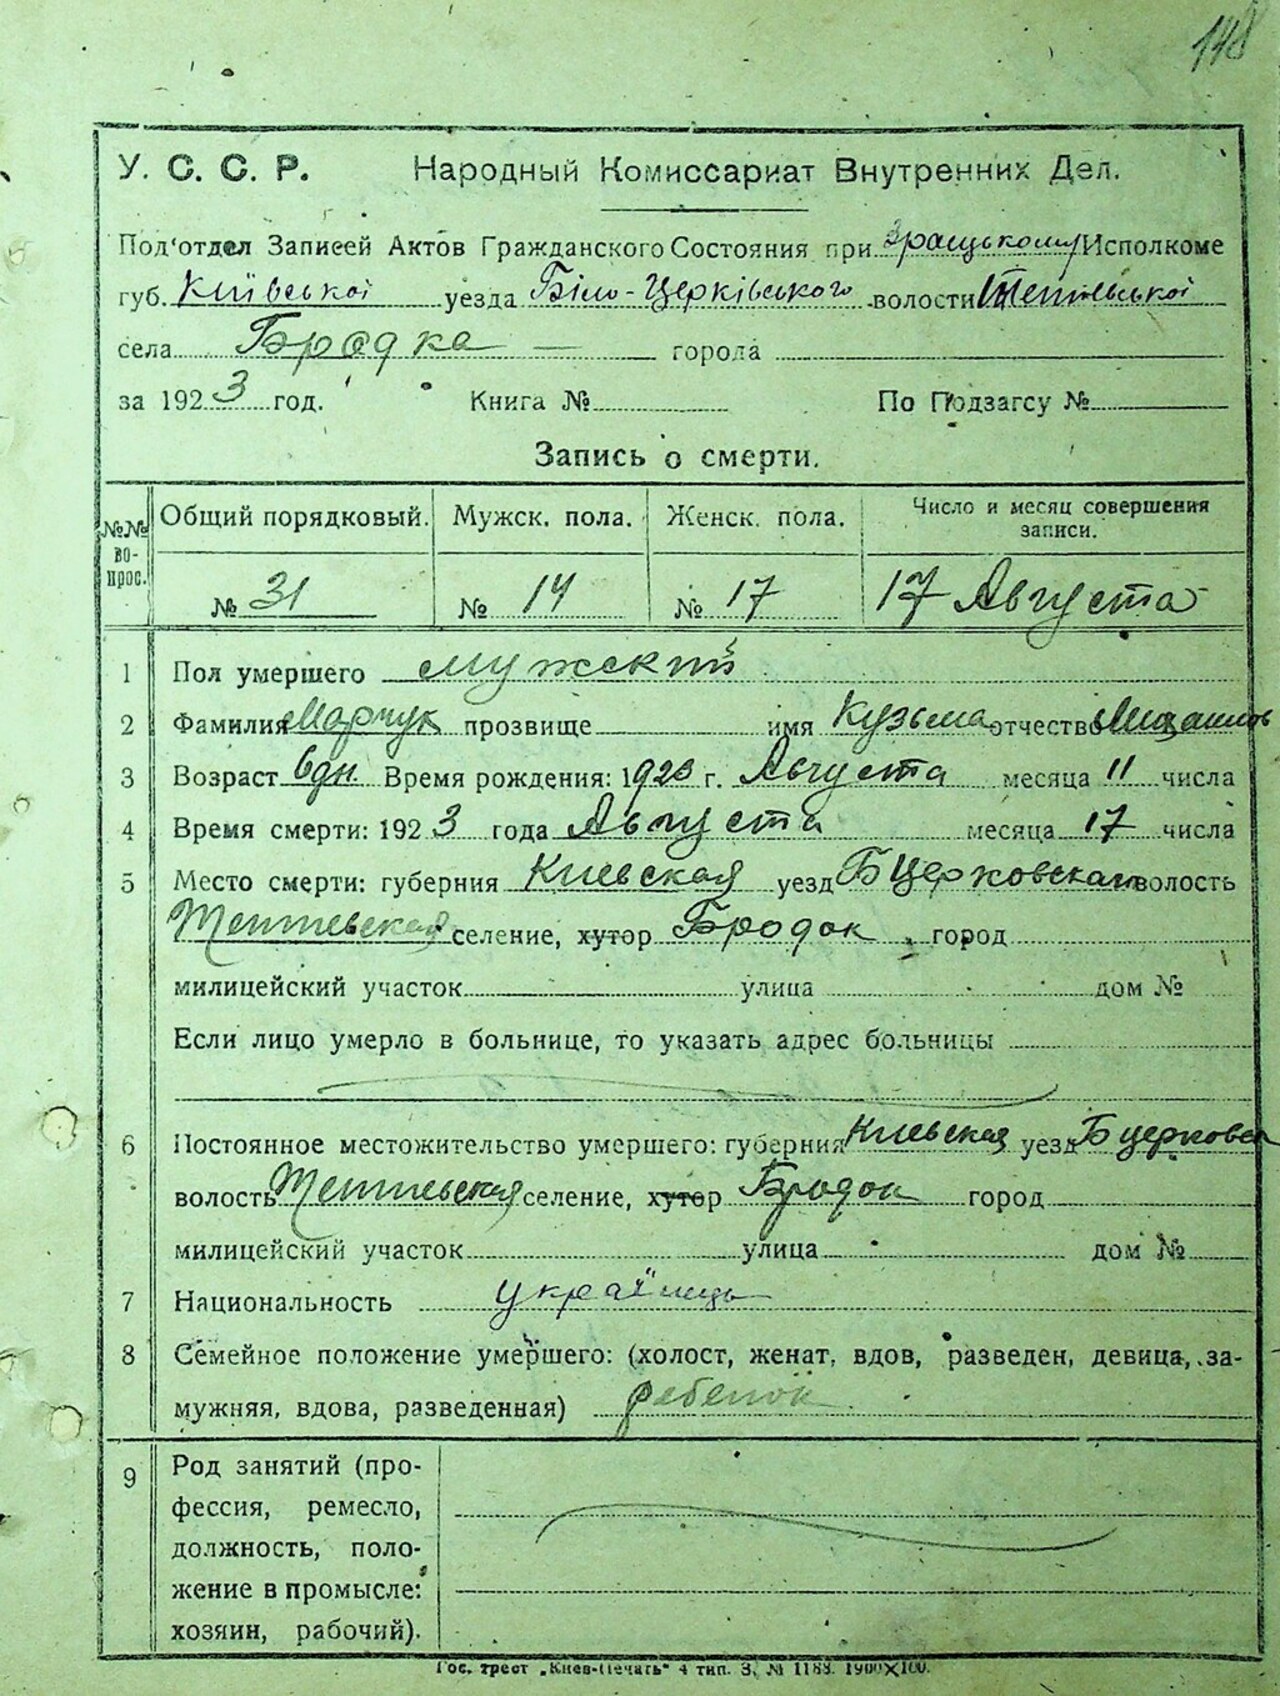 148
У. С. С. Р. Народный Комиссариат Внутренних Дел.
Под'отдел Записей Актов Гражданского Состояния при Исполкоме
губ. Київської уезда Біло-Церківського волости
села Бродка — города
за 1923 год. Книга № По Подзагсу №
Запись о смерти.
№№ вопрос. Общий порядковый. Мужск. пола. Женск. пола. Число и месяц совершения записи.
№ 31 № 14 № 17 17 Августа
1 Пол умершего мужский
2 Фамилия Марчук прозвище имя Кузьма отчество
3 Возраст 6 дн. Время рождения: 1923 г. Августа месяца 11 числа
4 Время смерти: 1923 года Августа месяца 17 числа
5 Место смерти: губерния Киевская уезд БЦерковская волость
селение, хутор Бродок, город
милицейский участок улица дом №
Если лицо умерло в больнице, то указать адрес больницы
6 Постоянное местожительство умершего: губерния Киевская уезд Бцерковск
волость селение, хутор Бродок город
милицейский участок улица дом №
7 Национальность українець
8 Семейное положение умершего: (холост, женат, вдов, разведен, девица, за-
мужняя, вдова, разведенная) ребенок
9 Род занятий (про-
фессия, ремесло,
должность, поло-
жение в промысле:
хозяин, рабочий).
Гос. трест „Киев-Печать“ 4 тип. З. № 1188. 1900×100.